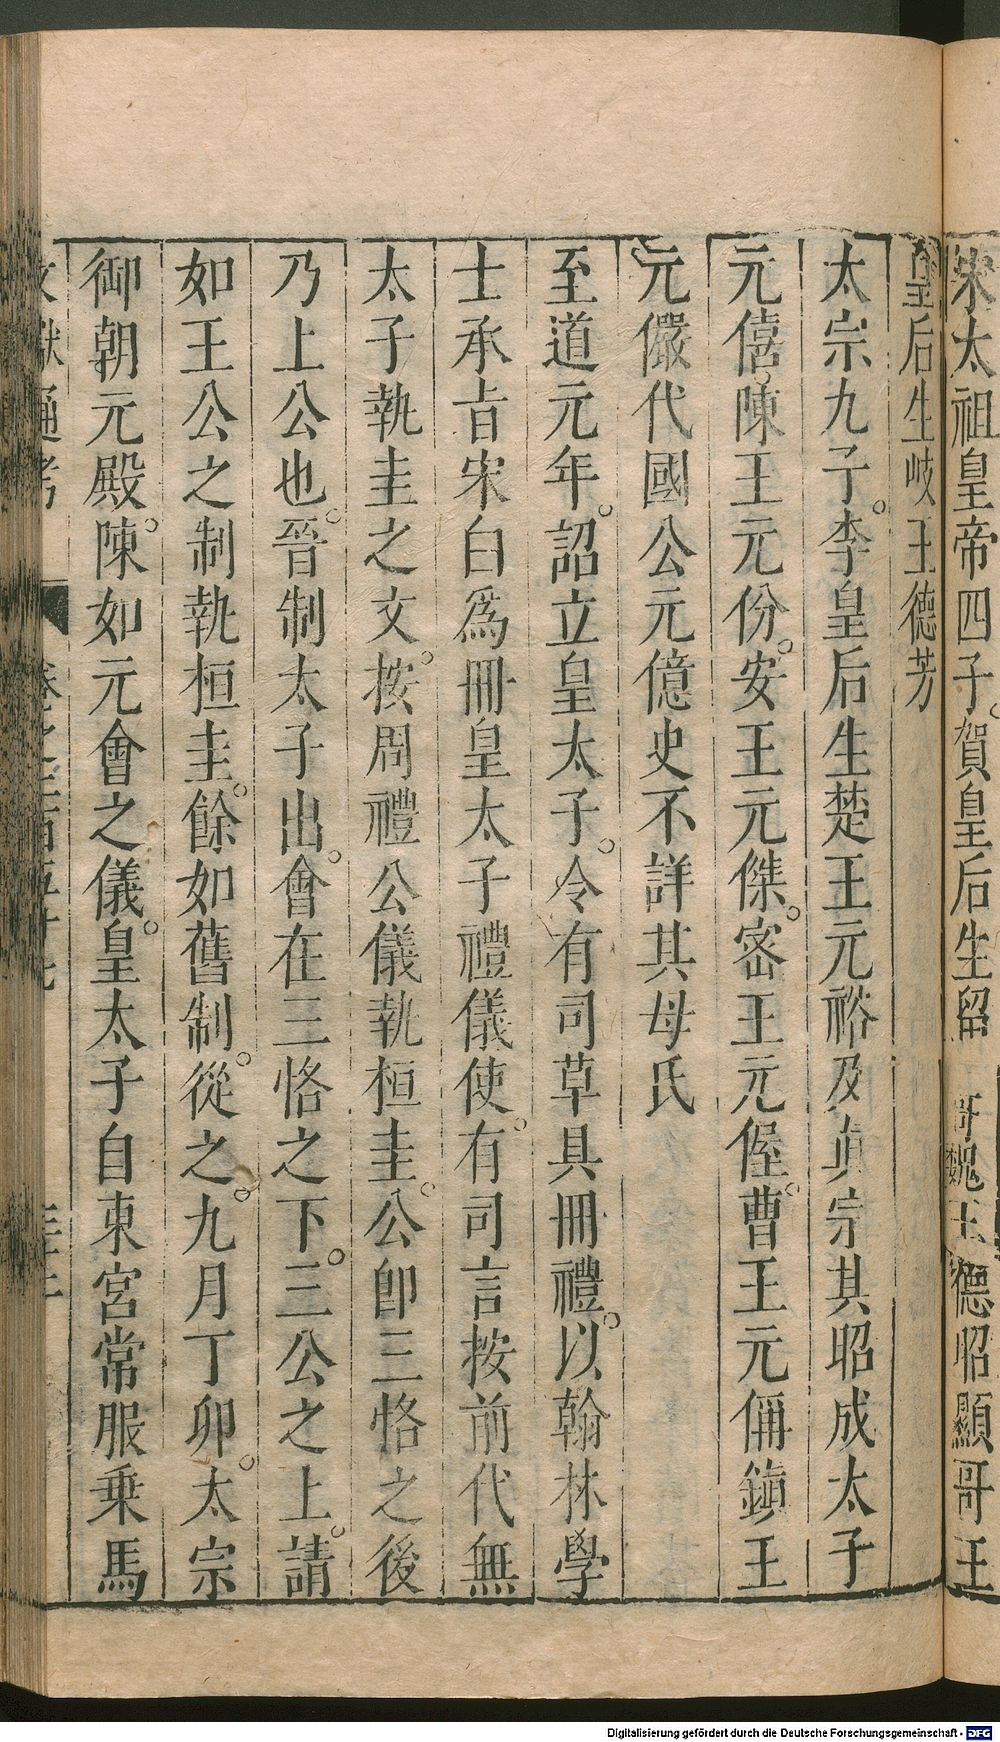 宋太祖皇帝四子。賀皇后生留哥魏王德昭顯哥王
皇后生岐王德芳
太宗九子。李皇后生楚王元𥙿及眞宗其昭成太子
元僖。陳王元份。安王元傑。密王元偓。曹王元偁鎮王
元儼代國公元億史不詳其母氏
至道元年。詔立皇太子。令有司草具冊禮。以翰林學
士承㫖宋白爲冊皇太子禮儀使。有司言按前代無
太子執圭之文。按周禮公儀執桓圭。公卽三恪之後
乃上公也。晉制太子出。會在三恪之下。三公之上。請
如王公之制執桓圭。餘如舊制。從之。九月丁卯。太宗
御朝元殿。陳如元會之儀。皇太子自東宮常服乗馬
文獻通考
Digitalisierung gefördert durch die Deutsche Forschungsgemeinschaft - DFG